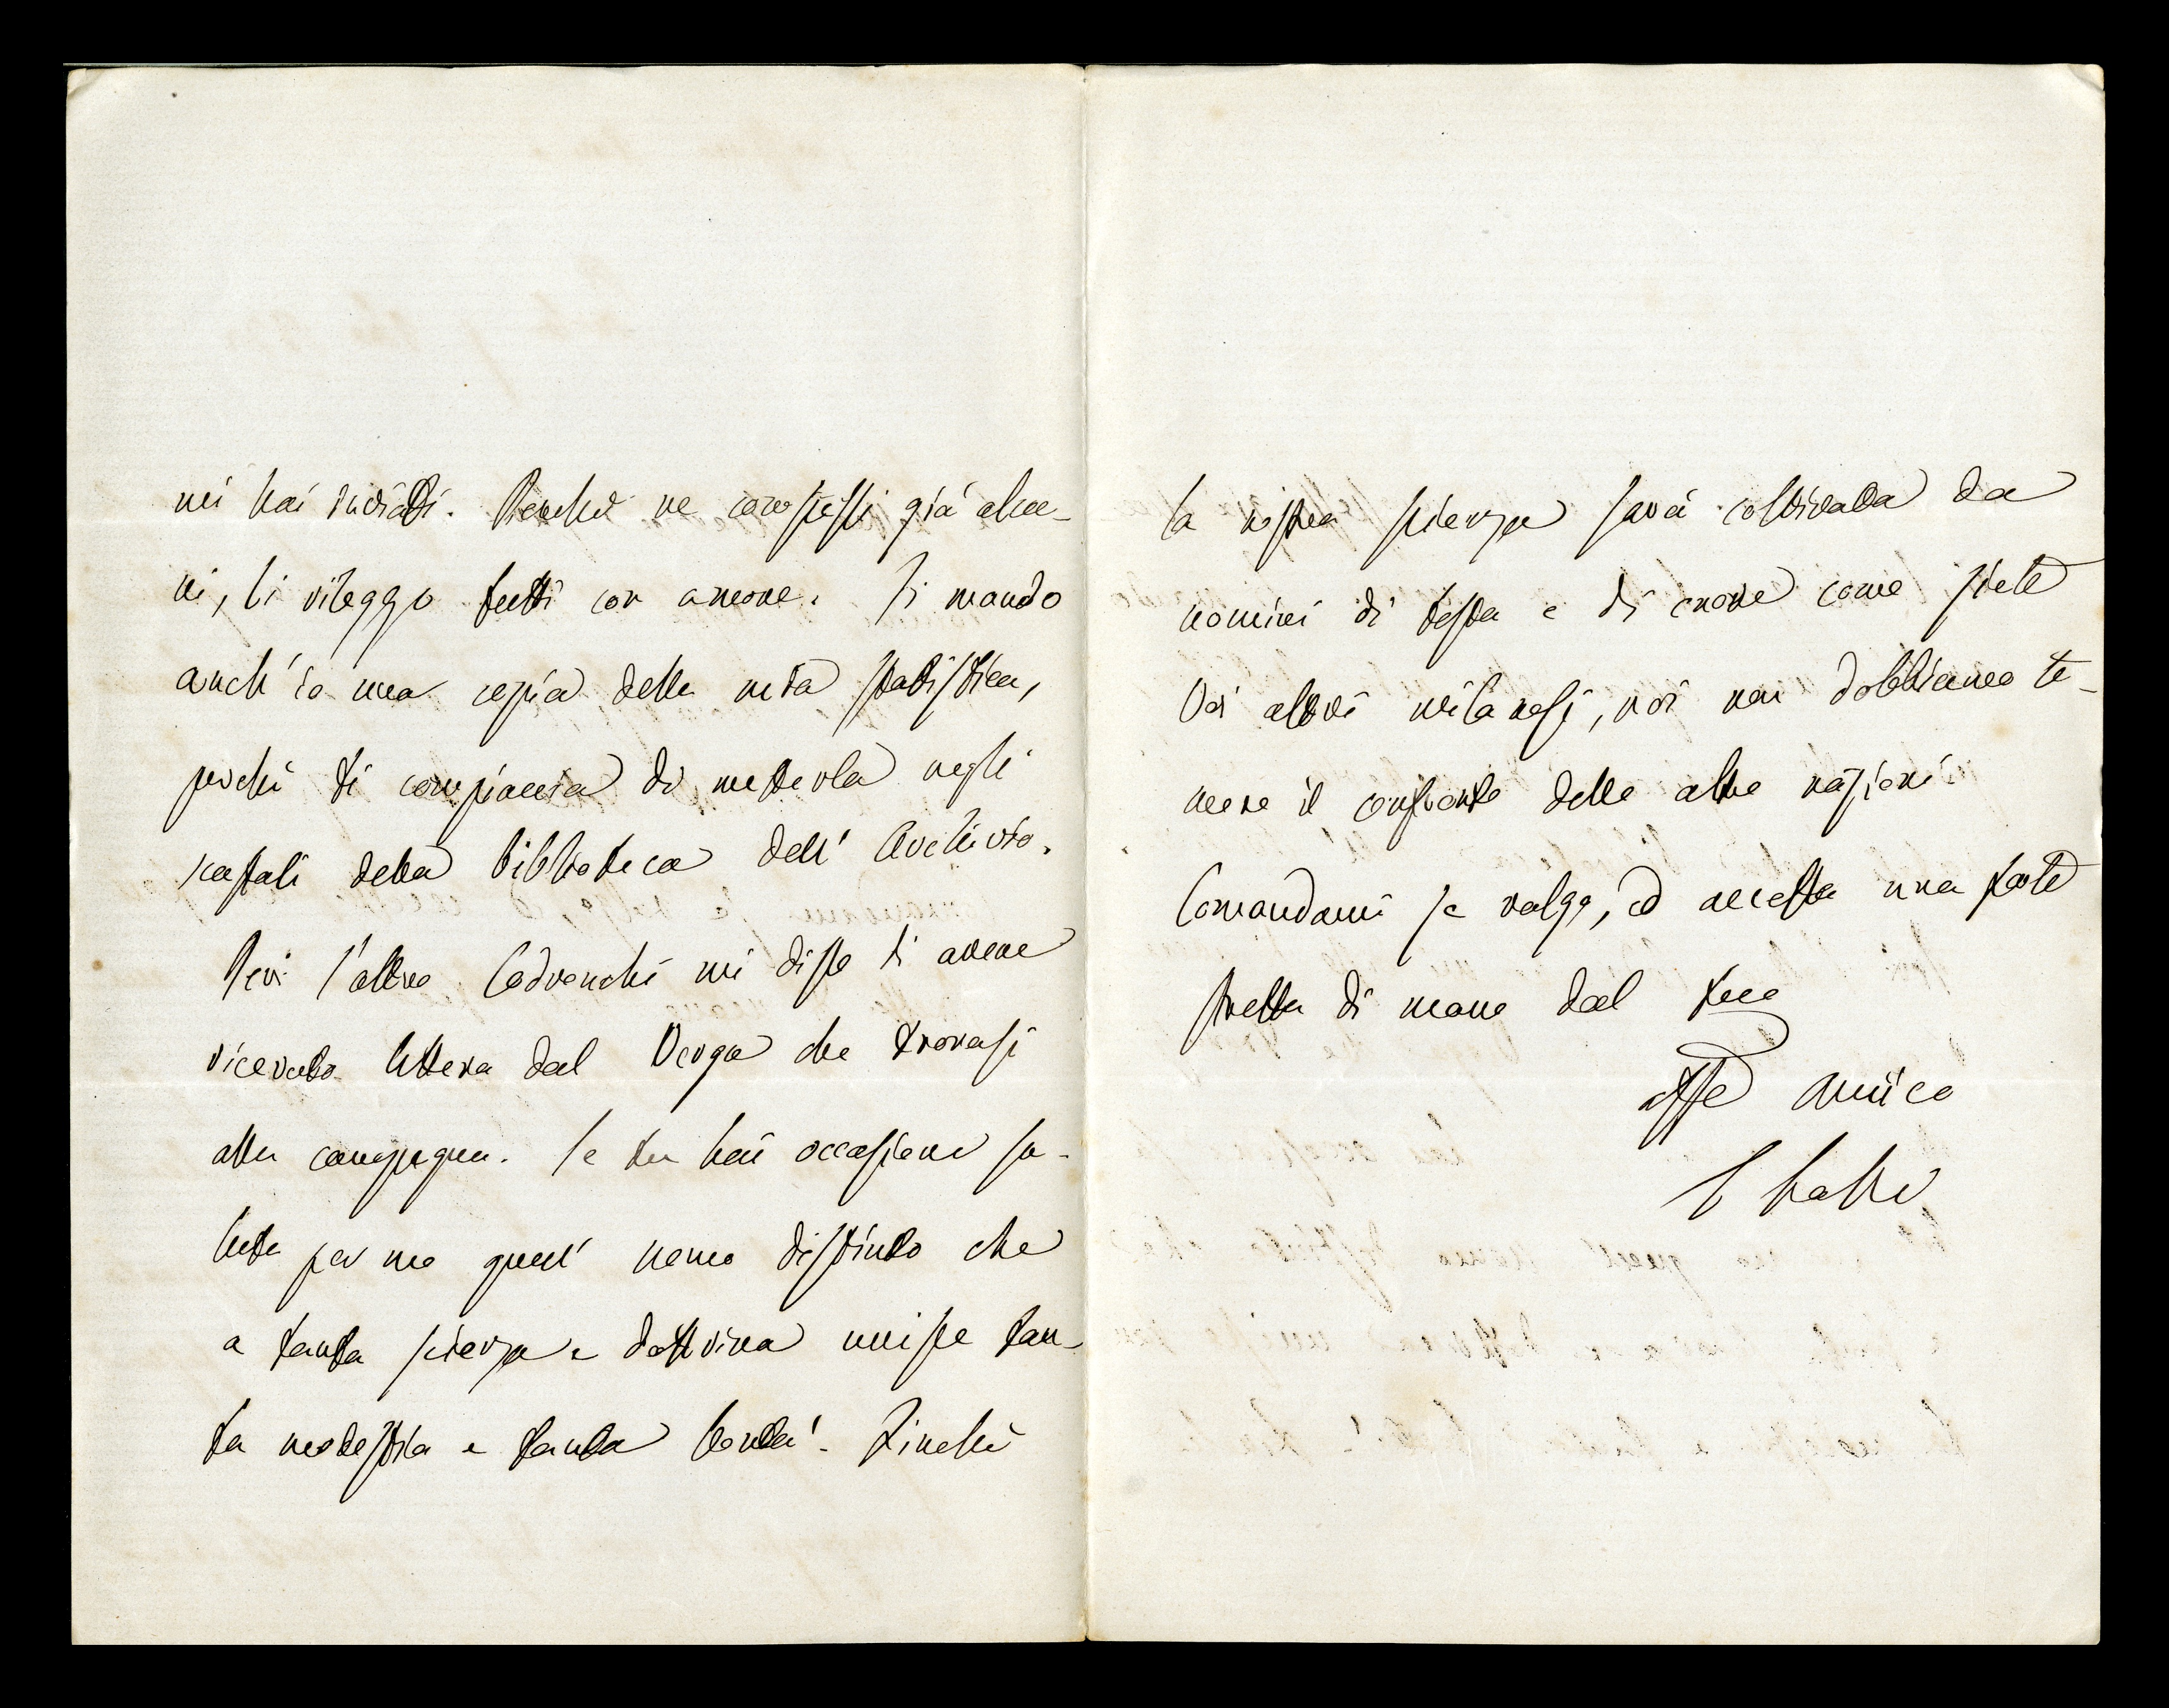 mi hai inviati. Benchè ne conoscessi già alcu-
ni, li rileggo tutti con amore. Ti mando
anch'io una copia della mia statistica,
perchè ti compiaccia di metterla negli
scafali della biblioteca dell'Archivio.
Ieri l'altro Lodronchi mi disse di avere
ricevuto lettera dal Verga che trovasi
alla campagna. Se tu hai occasione sa-
luta per me quell'uomo distinto che
a tanta scienza e dottrina unisce tan-
ta modestia e tanta bontà. Finchè
la nostra scienza sarà coltivata da
uomini di testa e di cuore come siete
Voi altri milanesi, noi non dobbiamo te-
mere il confronto delle altre nazioni.
Comandami se valgo, ed accetta una forte
stretta di mano dal tuo
affe amico